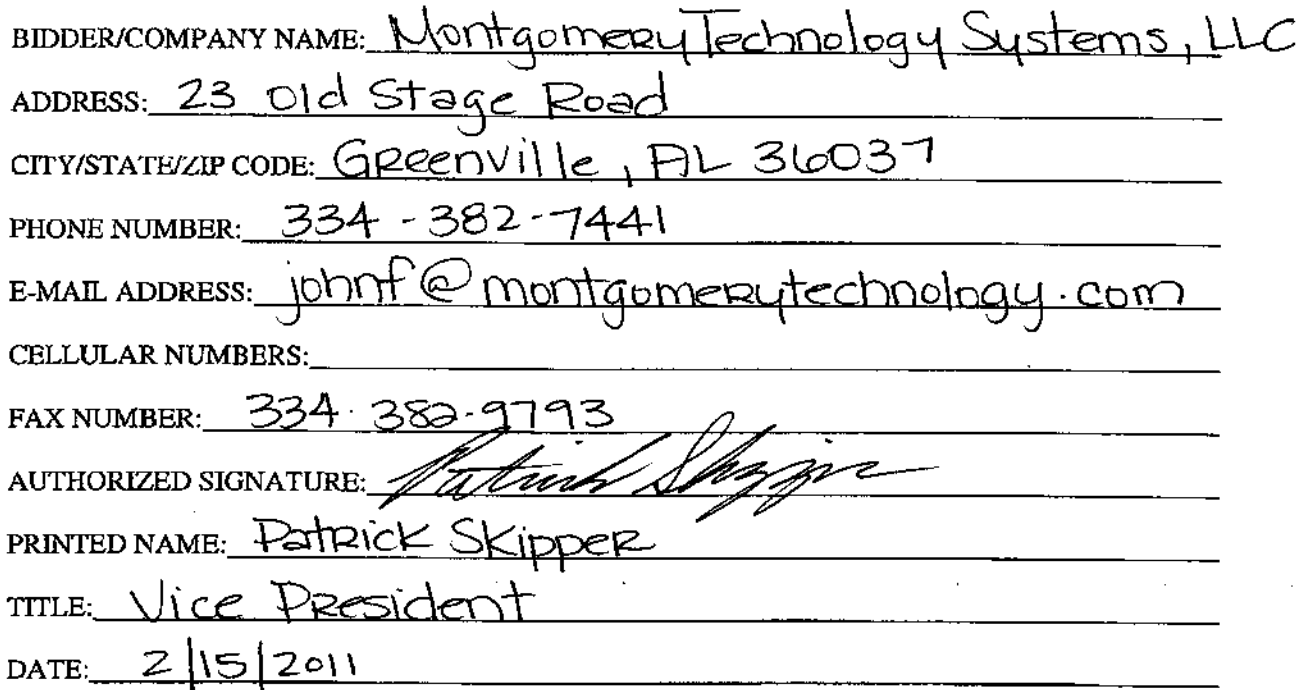 BIDDER/COMPANY NAME: Montgomery Technology Systems, LLC
ADDRESS: 23 Old Stage Road
CITY/STATE/ZIP CODE: Greenville, AL 36037
PHONE NUMBER: 334-382-7441
E-MAIL ADDRESS: johnf@montgomerytechnology.com
CELLULAR NUMBERS:
FAX NUMBER: 334.382-9793
AUTHORIZED SIGNATURE: Patrick Skipper
PRINTED NAME: Patrick Skipper
TITLE: Vice President
DATE: 2/15/2011